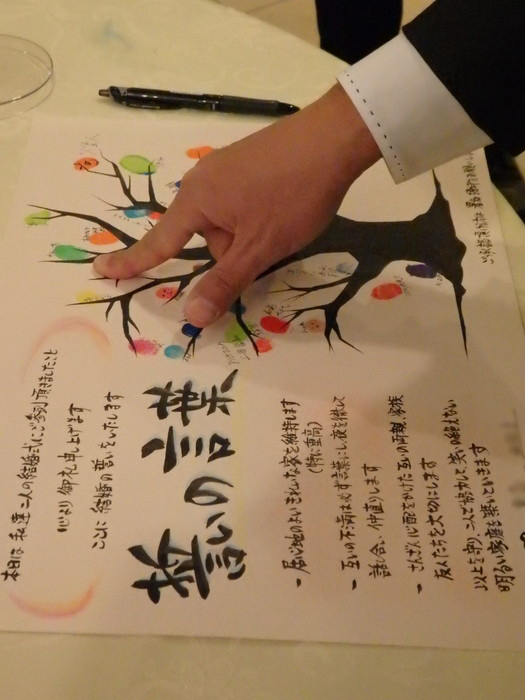 本日は 私達 二人の結婚式にご参列頂きましたこと
心より 御礼 申し上げます
ここに 結婚の誓いをいたします
誓いの言葉
- 居心地のよいきれいな家を維持します
(特に重高)
- 互いの不満は必ず言葉にし夜を侍して
話し合い、仲直りします
- さんざん心配をかけた互いの両親、家族
友人たちを大切にします
以上を守り、二人で協力し、笑いの絶えない
明るい家庭を築いていきます